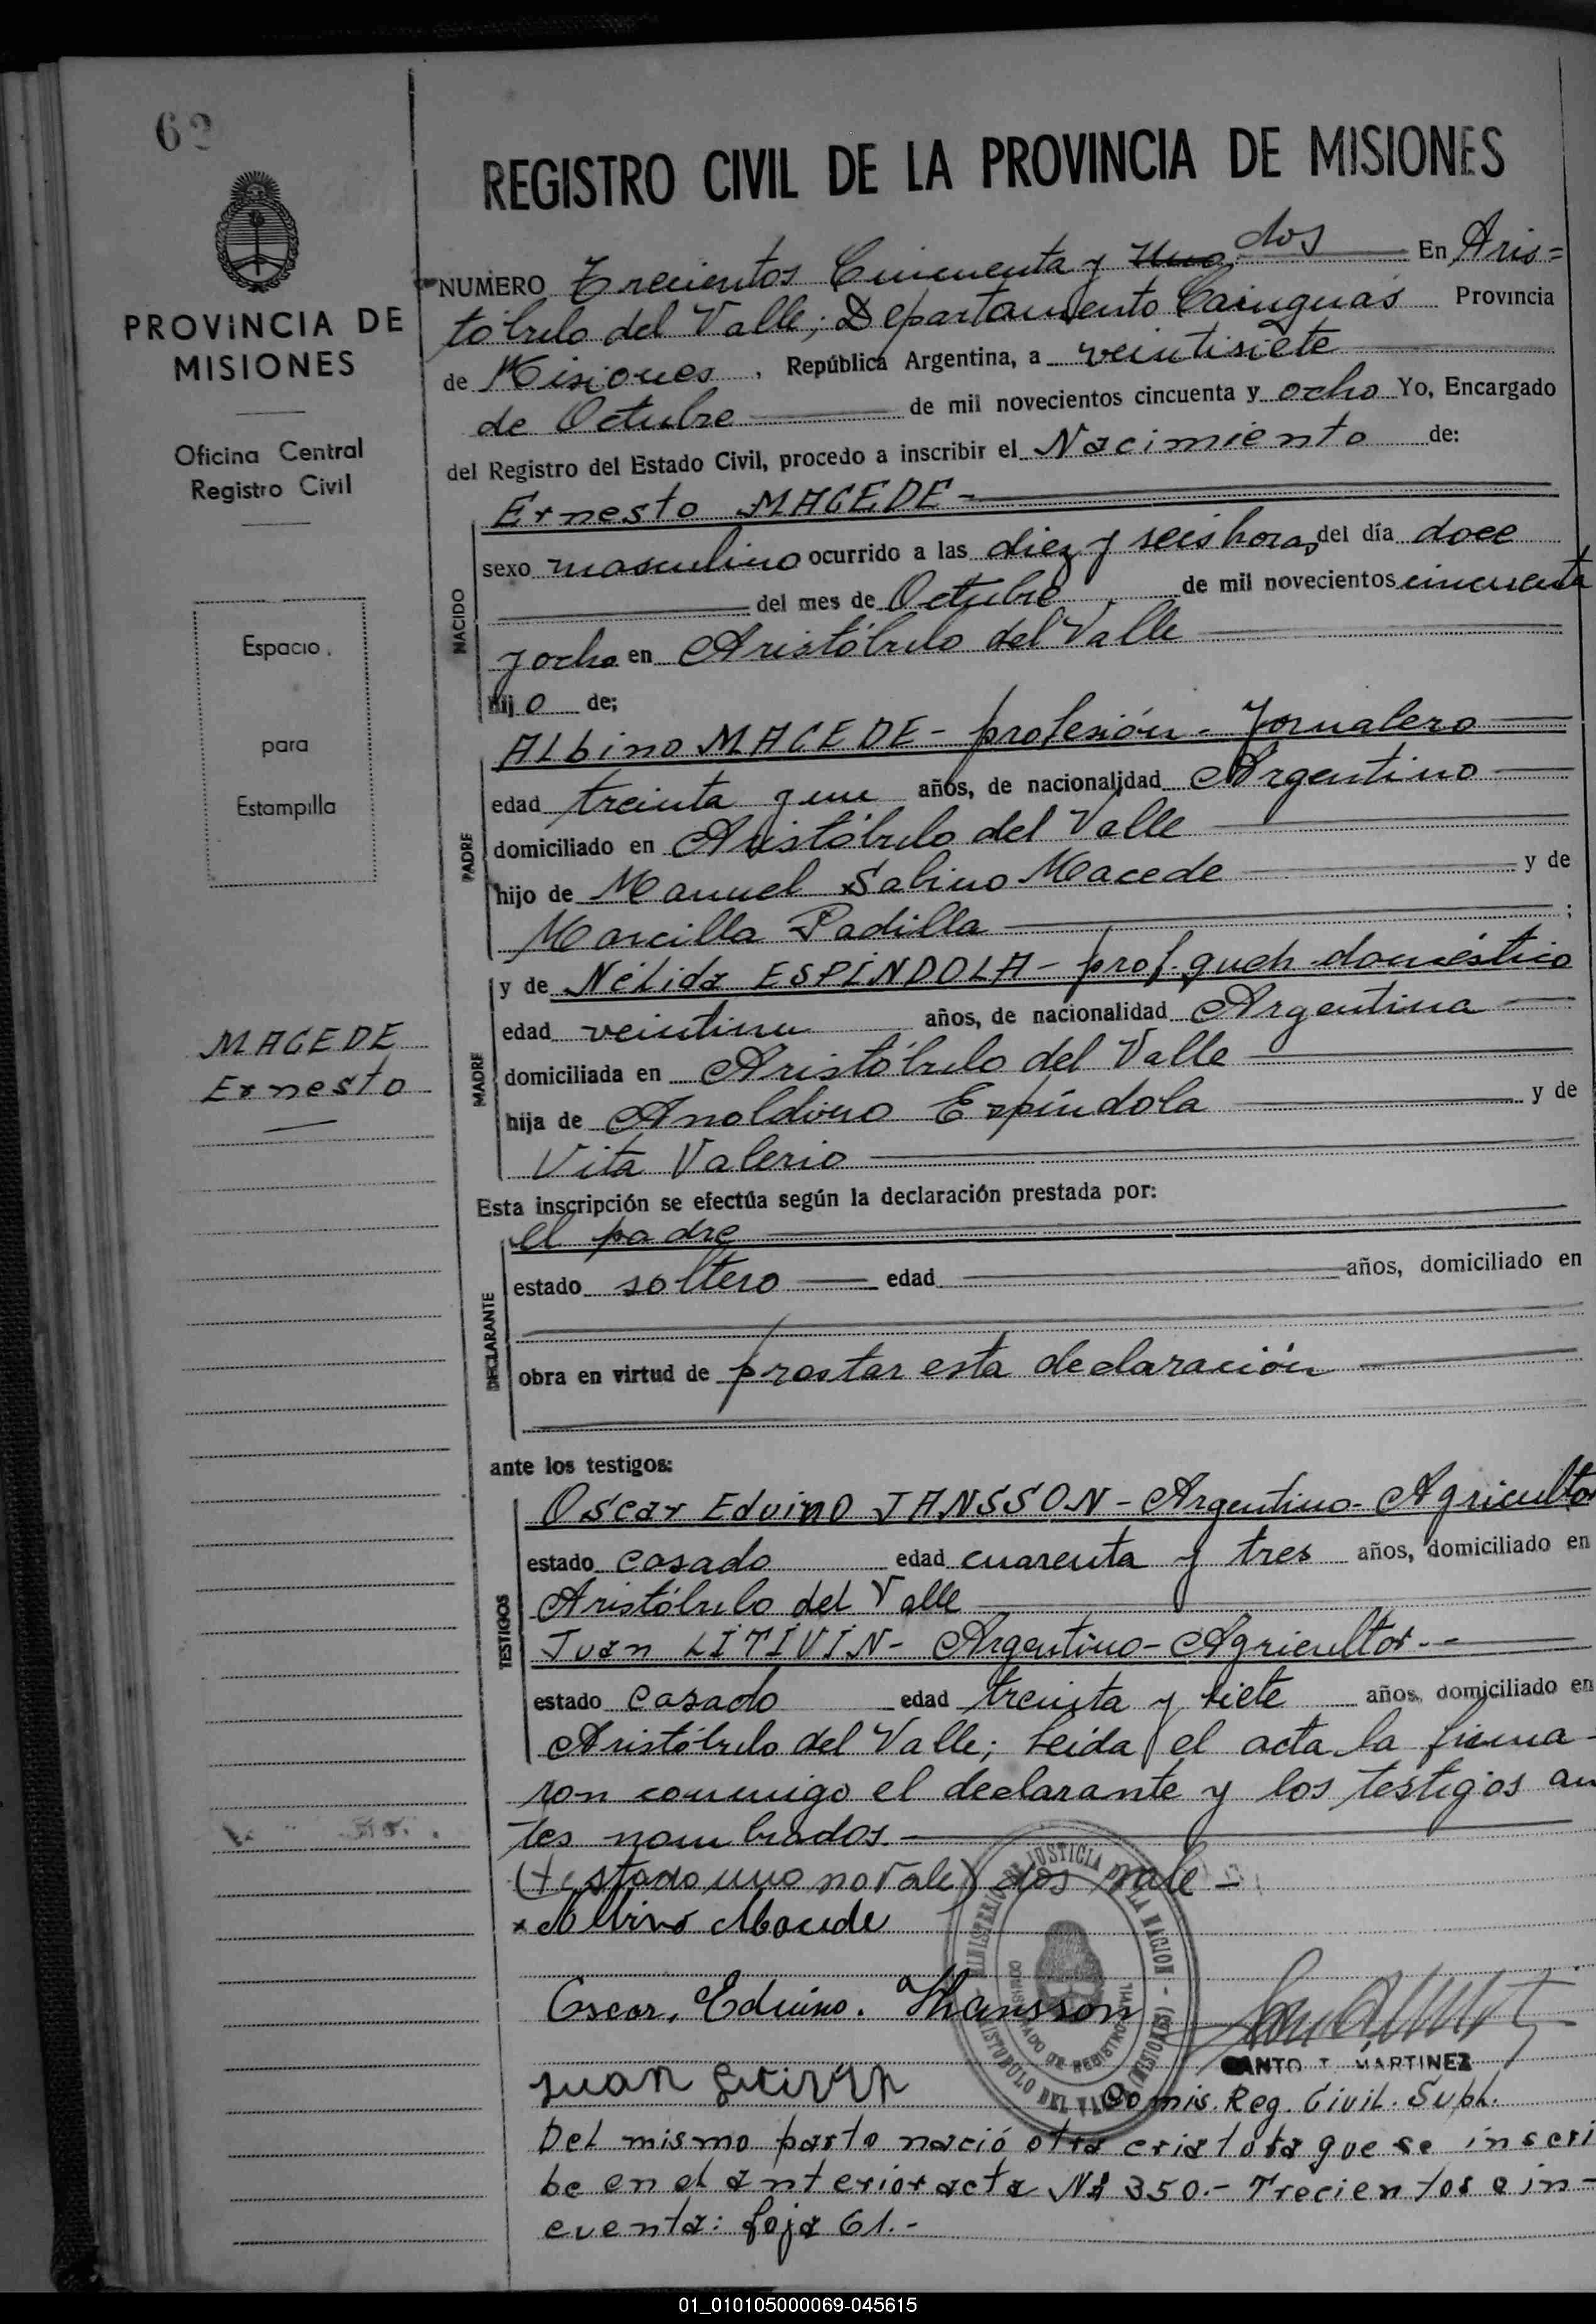 62
PROVINCIA DE
MISIONES
Oficina Central
Registro Civil
Espacio
para
Estampilla
MACEDE
Ernesto
REGISTRO CIVIL DE LA PROVINCIA DE MISIONES
NUMERO Trecientos Cincuenta y Uno dos En Aris=
tóbulo del Valle; Departamento Cainguas Provincia
de Misiones, República Argentina, a veintisiete
de Octubre de mil novecientos cincuenta y ocho Yo, Encargado
del Registro del Estado Civil, procedo a inscribir el Nacimiento de:
Ernesto MACEDE -
NACIDO
sexo masculino ocurrido a las diez y seis horas del día doce
del mes de Octubre de mil novecientos cincuenta
y ocho en Aristóbulo del Valle
hijo de;
Albino MACEDE - profesión - Jornalero
PADRE
edad treinta y un años, de nacionalidad Argentino
domiciliado en Aristóbulo del Valle
hijo de Manuel Sabino Macede y de
Marcilla Padilla ;
y de Nélida ESPÍNDOLA - prof. queh. doméstico
MADRE
edad veintiun años, de nacionalidad Argentina
domiciliada en Aristóbulo del Valle
hija de Anoldino Espíndola y de
Vita Valerio
Esta inscripción se efectúa según la declaración prestada por:
el padre
DECLARANTE
estado soltero edad años, domiciliado en
obra en virtud de prestar esta declaración
ante los testigos:
Oscar Edvino JANSSON - Argentino - Agricultor
TESTIGOS
estado casado edad cuarenta y tres años, domiciliado en
Aristóbulo del Valle
Juan LITIVIN - Argentino - Agricultor. -
estado casado edad treinta y siete años, domiciliado en
Aristóbulo del Valle; Leída el acta la firma-
ron conmigo el declarante y los testigos an
tes nombrados. -
(testado uno no vale) dos vale -
Albino Macede
Oscar, Eduino. Jhansson
MINISTERIO DE JUSTICIA DE LA NACION - ARISTOBULO DEL VALLE (MISIONES)
COMISARIADO DE REGISTRO CIVIL
SANTO T. MARTINEZ
Juan Litivin
Comis. Reg. Civil. Supl.
Del mismo parto nació otra criatura que se inscri
be en el anterior acta Nº 350.- Trecientos cin-
cuenta: foja 61.-
01_010105000069-045615